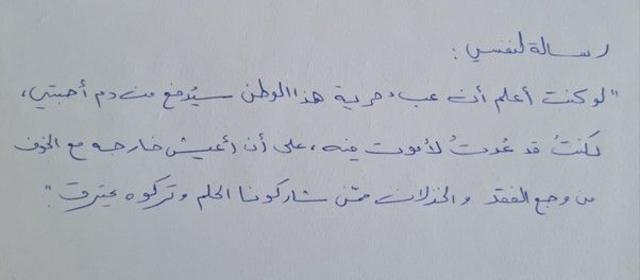 رسالة لنفسي :
"لو كنت أعلم أن عبء حرية هذا الوطن سيُدفع من دم أحبتي،
لكنتُ قد عُدتُ لأموت فيه، على أن أعيش خارجه مع الخوف
من وجع الفقد والخذلان ممّن شاركونا الحلم وتركوه يحترق".